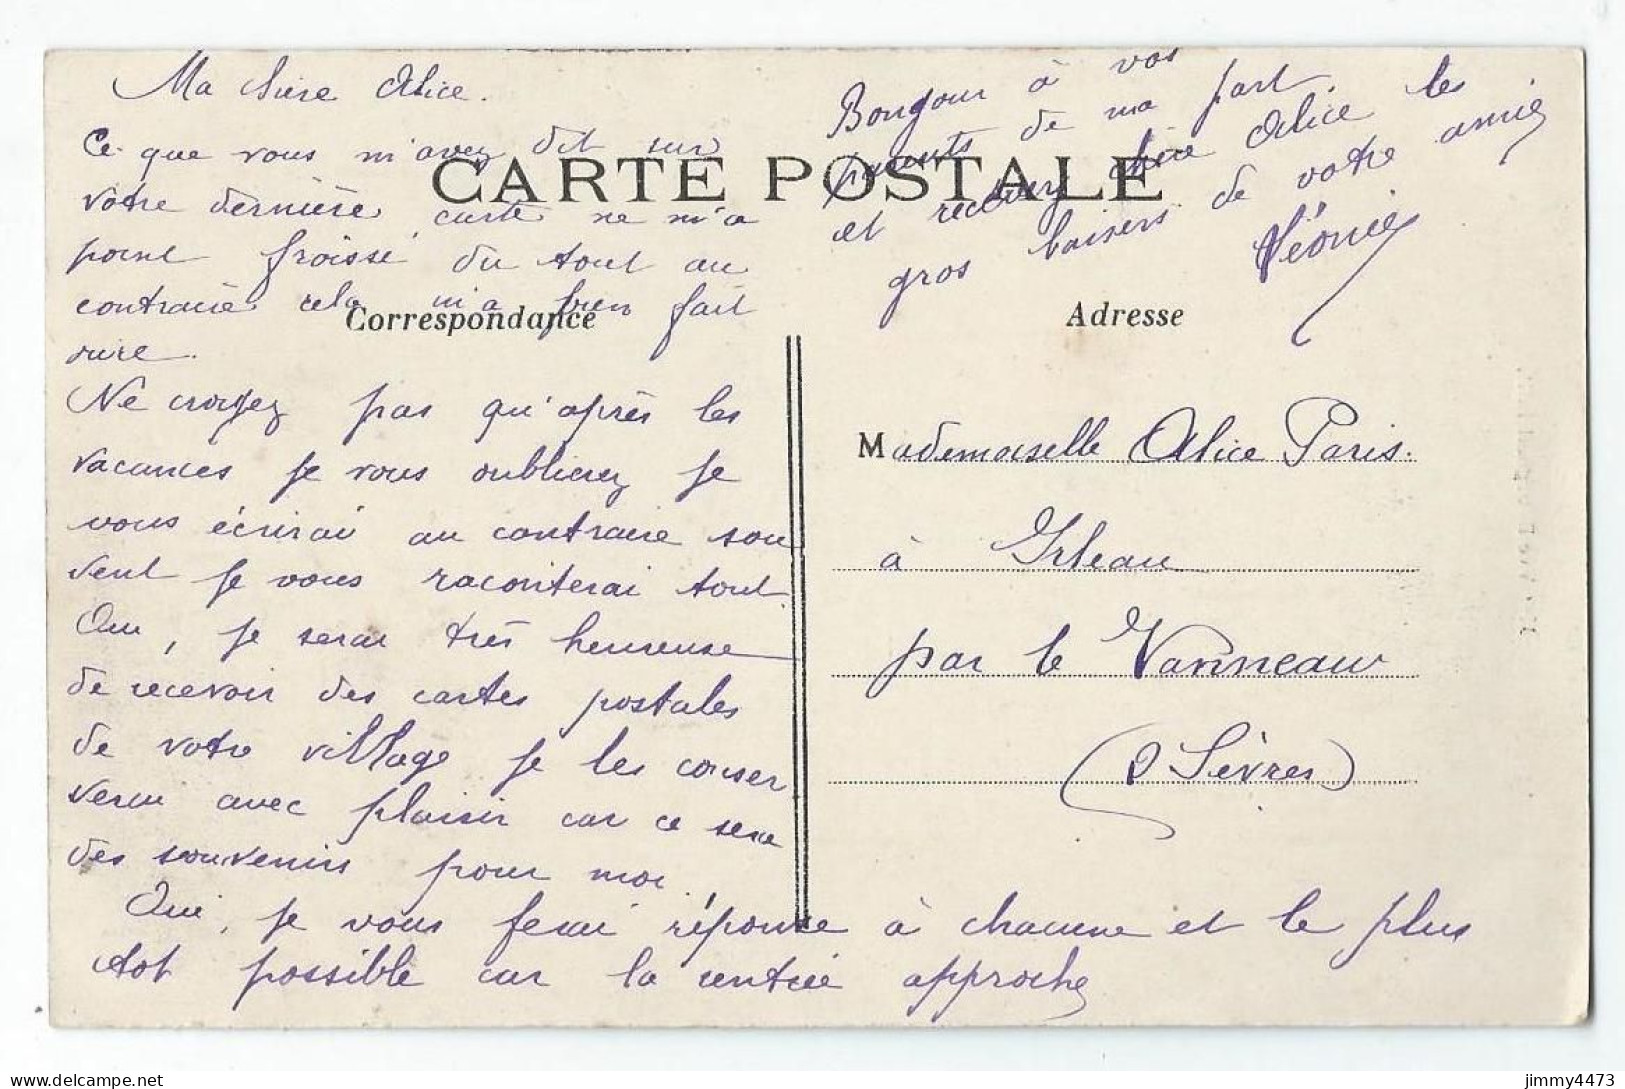 Ma chère Alice.
Ce que vous m'avez dit sur
CARTE POSTALE
votre dernière carte ne m'a
point froissé du tout au
contraire cela m'a bien fait
rire.
Correspondance
Ne croyez pas qu'après les
vacances je vous oublierez je
vous écrirai au contraire sou
vent je vous raconterai tout.
Oui, je serai très heureuse
de recevoir des cartes postales
de votre village je les conser
verai avec plaisir car ce sera
des souvenirs pour moi.
Oui, je vous ferai réponse à chacune et le plus
tot possible car la rentrée approche
Bonjour à vos
parents de ma part
et recevez chère Alice les
gros baisers de votre amie
Léonie
Adresse
Mademoiselle Alice Paris.
à Irleau
par le Vanneau
(2 Sèvres)
delcampe.net
jimmy4473